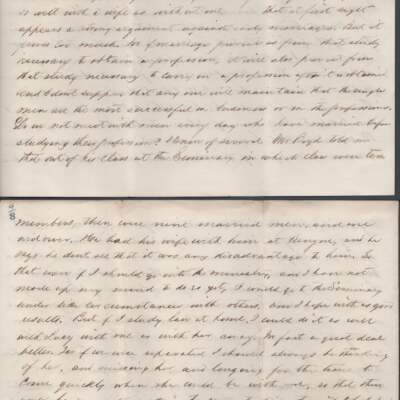 as well with a wife as without one. That at first sight
appears a strong argument against early marriages. But it
proves too much. For if marriage prevents us from that study
necessary to obtain a profession, it will also prevent from
that study necessary to carry on a profession after it is obtained
and I don't suppose that any one will maintain that the single
men are the most successful in business or in the professions.
Do we not meet with men every day who have married before
studying their profession? I know of several. Mr Boyd told me
that out of his class at the Seminary in which class were ten
members, there were nine married men, and one
widower. He had his wife with him at and he
says he dont see that it was any disadvantage to him. So
that even if I should go into the ministry, and I have not
made up my mind to do so yet, I would go to the Seminary
under like circumstances with others, and I hope with as good
results. But if I study law at home, I could do it as well
with Lucy with me as with her away. In fact a good deal
better. For if we were separated I should always be thinking
of her, and missing her, and longing for the time to
come quickly when she could be with me, so that there